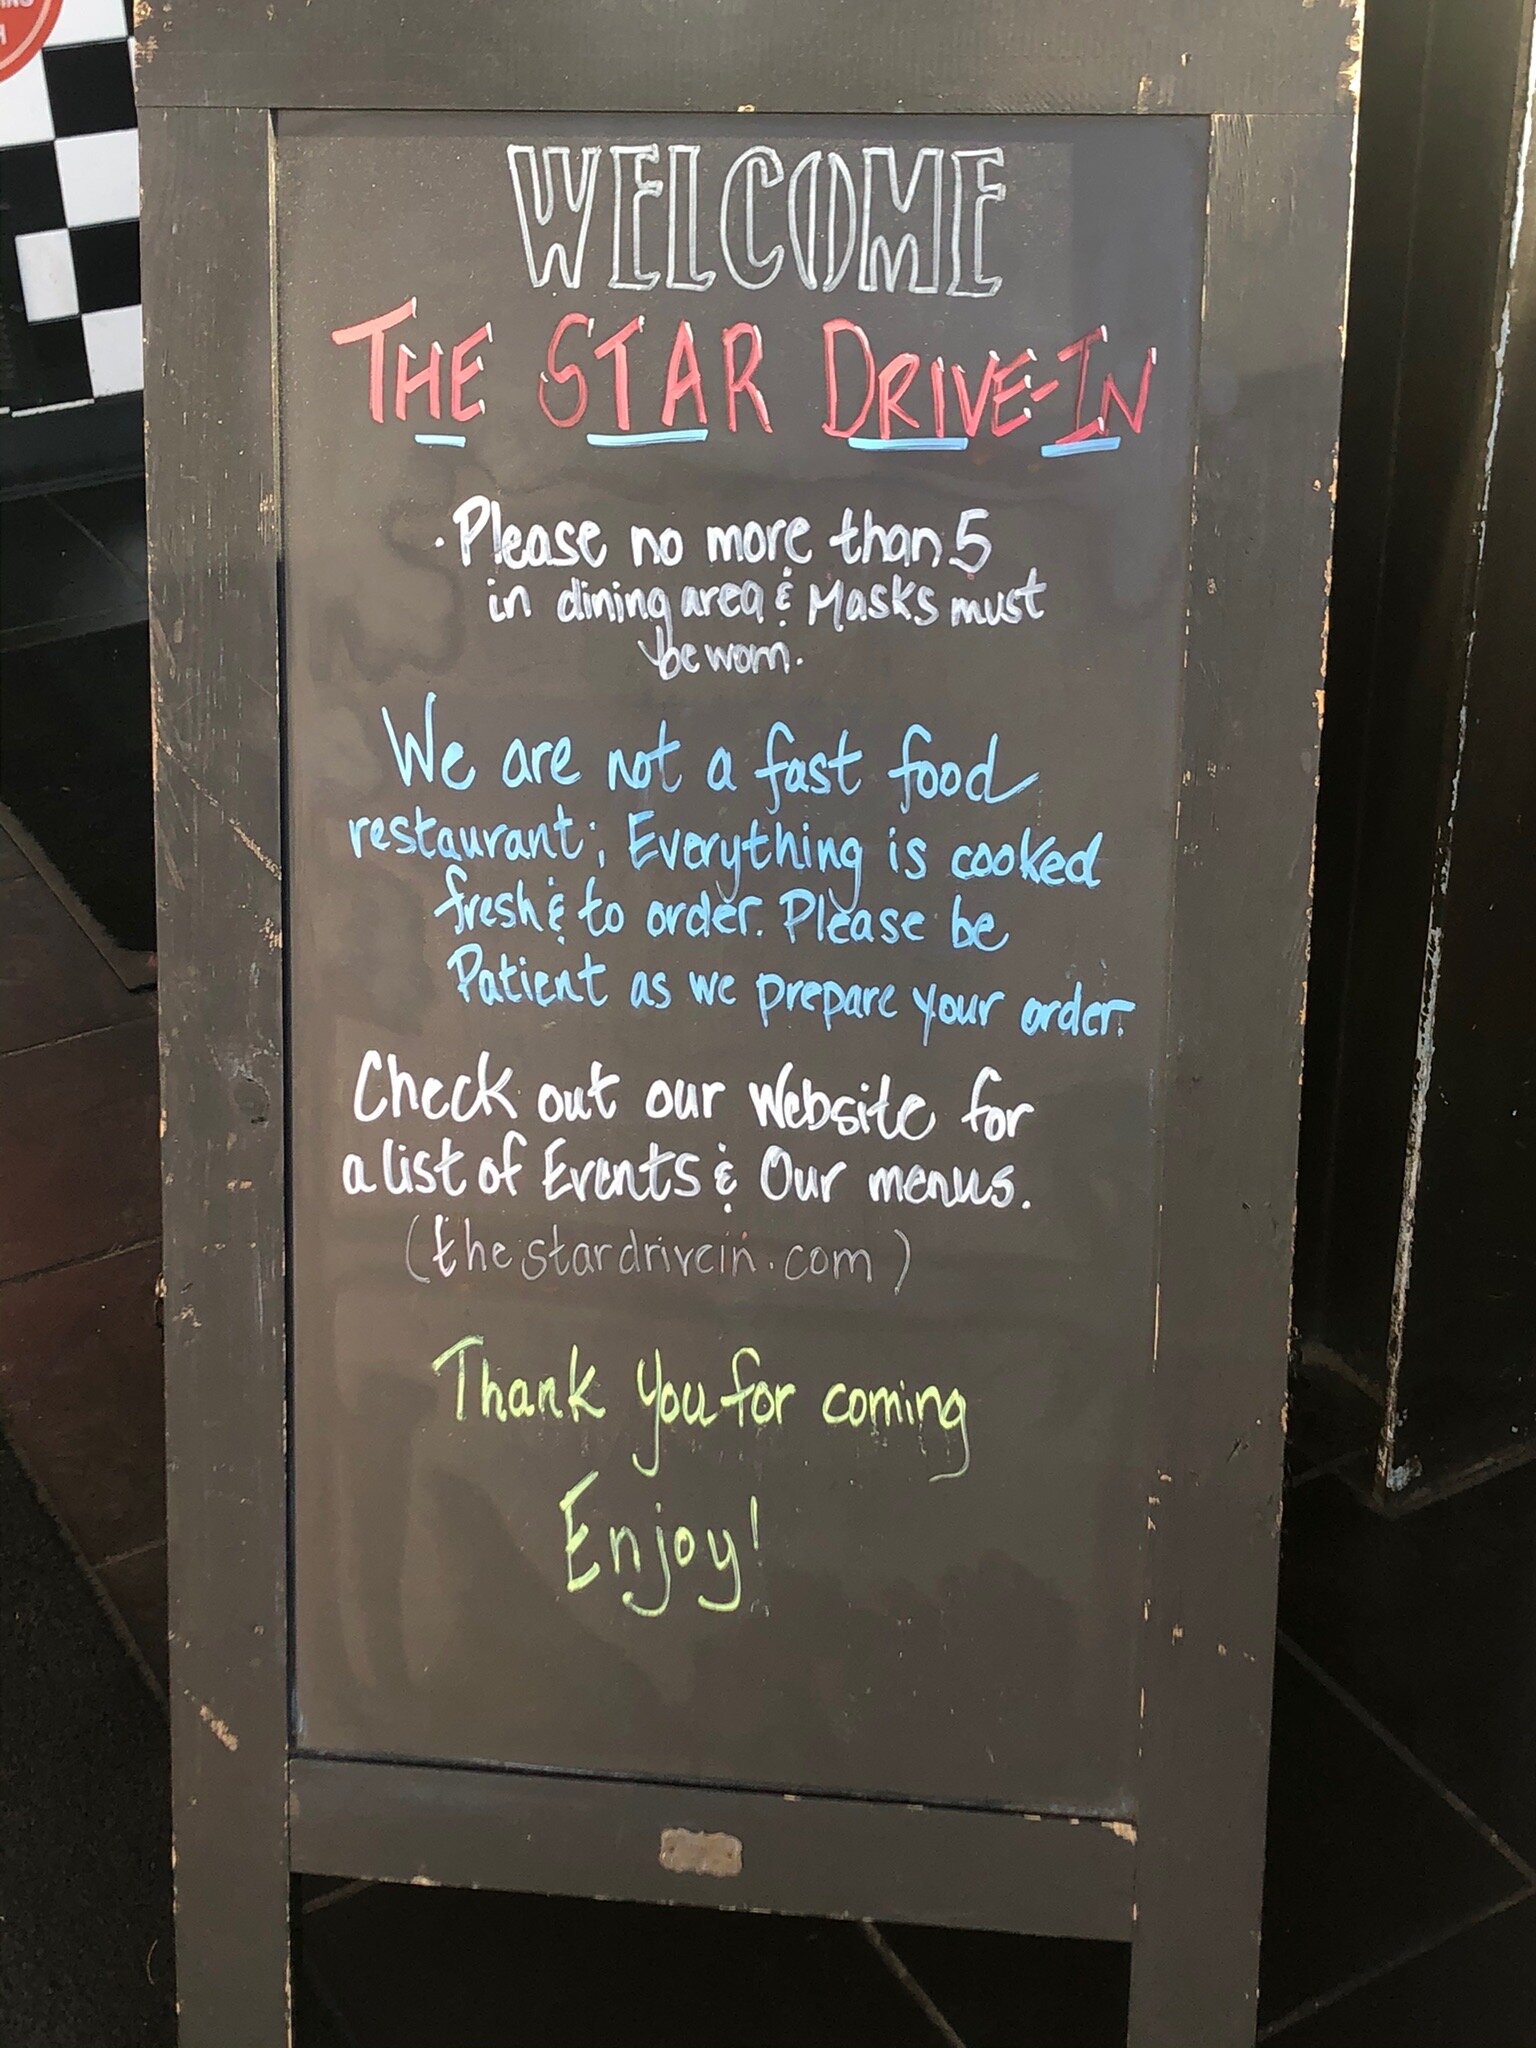 WELCOME
THE STAR DRIVE-IN
. Please no more than 5
in dining area & Masks must
be worn.
We are not a fast food
restaurant; Everything is cooked
fresh & to order. Please be
Patient as we prepare your order.
Check out our website for
a list of Events & Our menus.
(thestardrivein.com)
Thank you for coming
Enjoy!